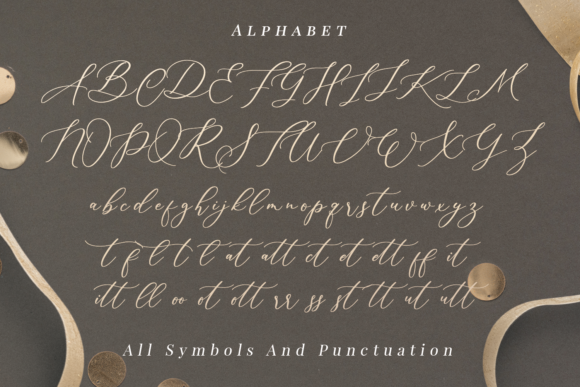 Alphabet
A B C D E F G H I J K L M
N O P Q R S T U V W X Y Z
a b c d e f g h i j k l m n o p q r s t u v w x y z
t f l t l at att et ct ett ff it
itt ll oo ot ott rr ss st tt ut utt
All Symbols And Punctuation